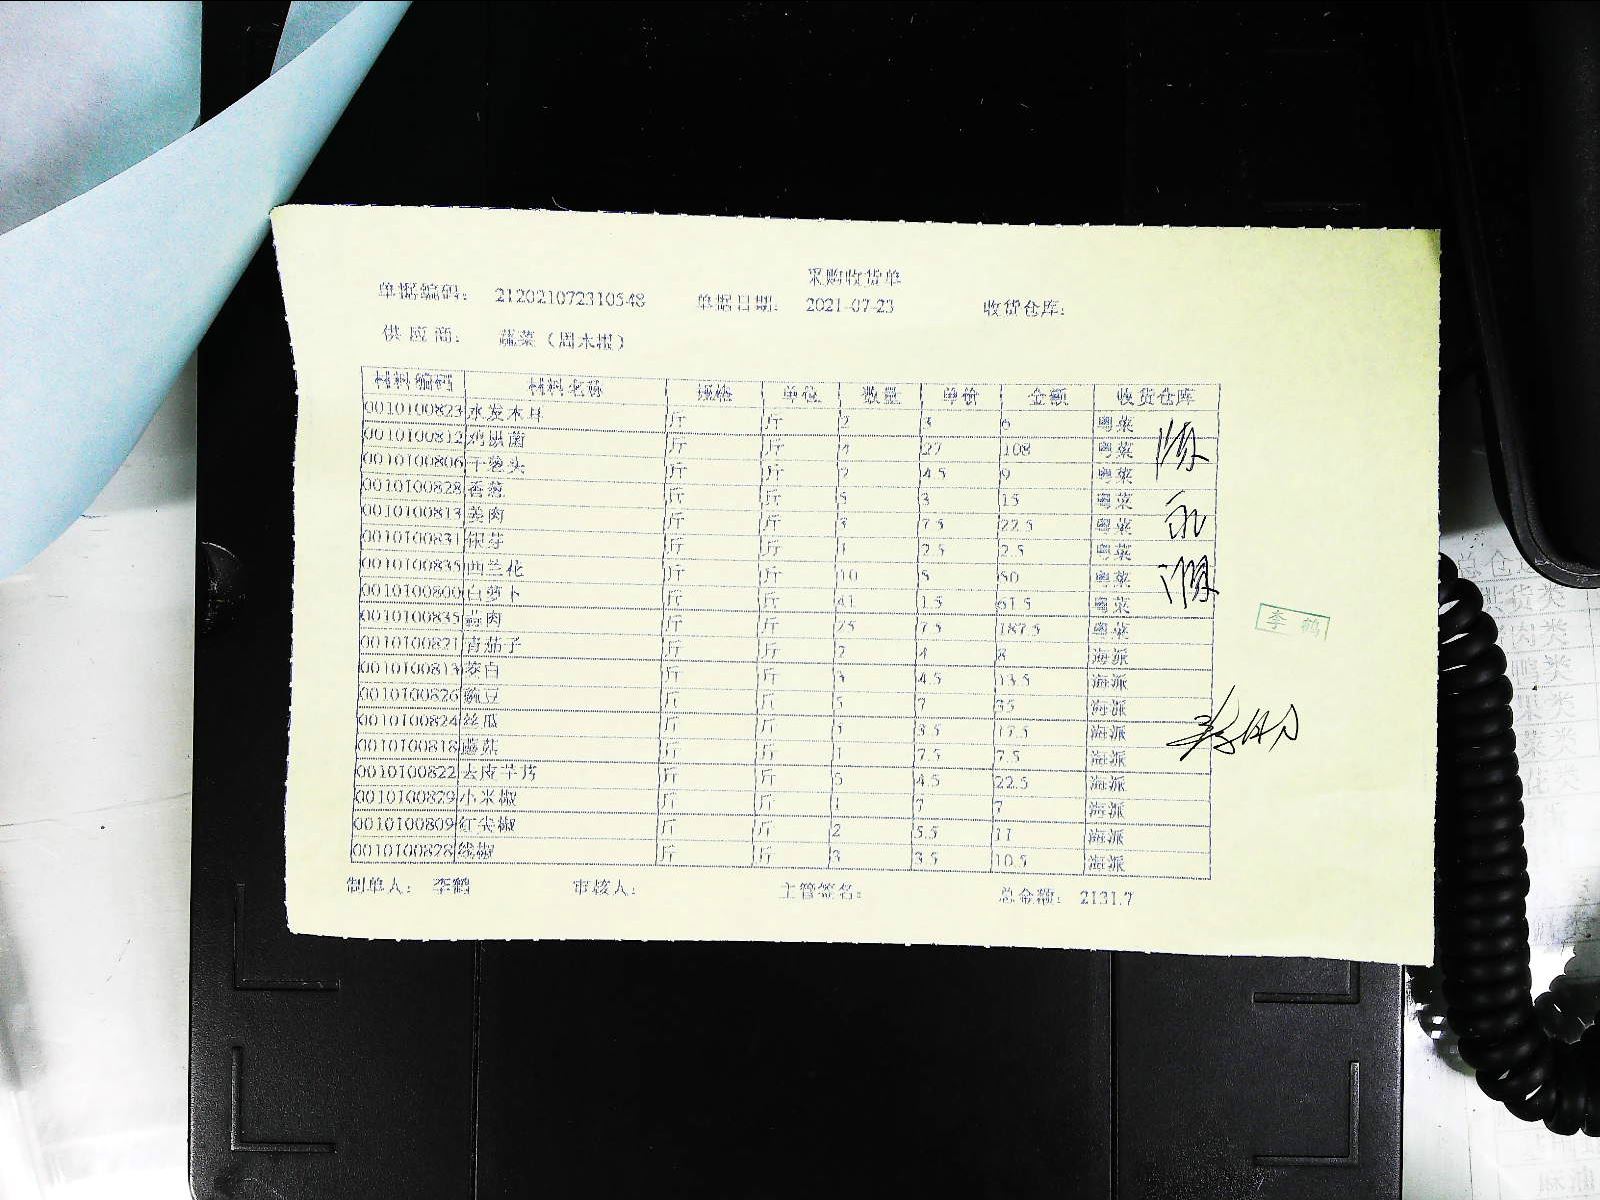 采购收货单
单据编码: 212021072310548 单据日期: 2021-07-23 收货仓库:
供应商: 蔬菜（周末根）
材料编码 材料名称 规格 单位 数量 单价 金额 收货仓库
0010100823 水发木耳 斤 斤 2 3 6 粤菜
0010100812 鸡枞菌 斤 斤 4 27 108 粤菜
0010100806 干葱头 斤 斤 2 4.5 9 粤菜
0010100828 香葱 斤 斤 5 3 15 粤菜
0010100813 姜肉 斤 斤 3 7.5 22.5 粤菜
0010100831 银芽 斤 斤 1 2.5 2.5 粤菜
0010100835 西兰花 斤 斤 10 5 50 粤菜
0010100800 白萝卜 斤 斤 41 1.5 61.5 粤菜
0010100835 蒜肉 斤 斤 25 7.5 187.5 粤菜
0010100821 青茄子 斤 斤 2 4 8 海派
0010100813 茭白 斤 斤 3 4.5 13.5 海派
0010100826 豌豆 斤 斤 5 7 35 海派
0010100824 丝瓜 斤 斤 5 3.5 17.5 海派
0010100818 蘑菇 斤 斤 1 7.5 7.5 海派
0010100822 去皮芋艿 斤 斤 5 4.5 22.5 海派
0010100829 小米椒 斤 斤 1 7 7 海派
0010100809 红尖椒 斤 斤 2 5.5 11 海派
0010100828 线椒 斤 斤 3 3.5 10.5 海派
李鹤
制单人: 李鹤 审核人: 主管签名: 总金额: 2131.7